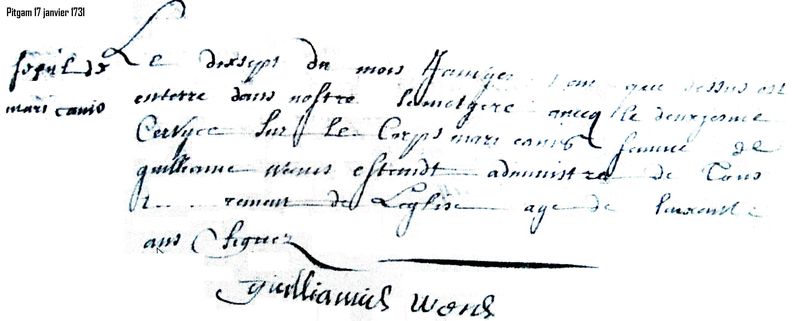 Pitgam 17 janvier 1731
sepul de
mari canio
Le dixsept du mois Janvger l an que dessus est
enterre dans nostre semetgere avecq le deuxiesme
Cervyce sur le Corps mari canis femme de
guilliame wens esteindt administre de Tous
de Leglise age de
ans Signez
guilliamus wens